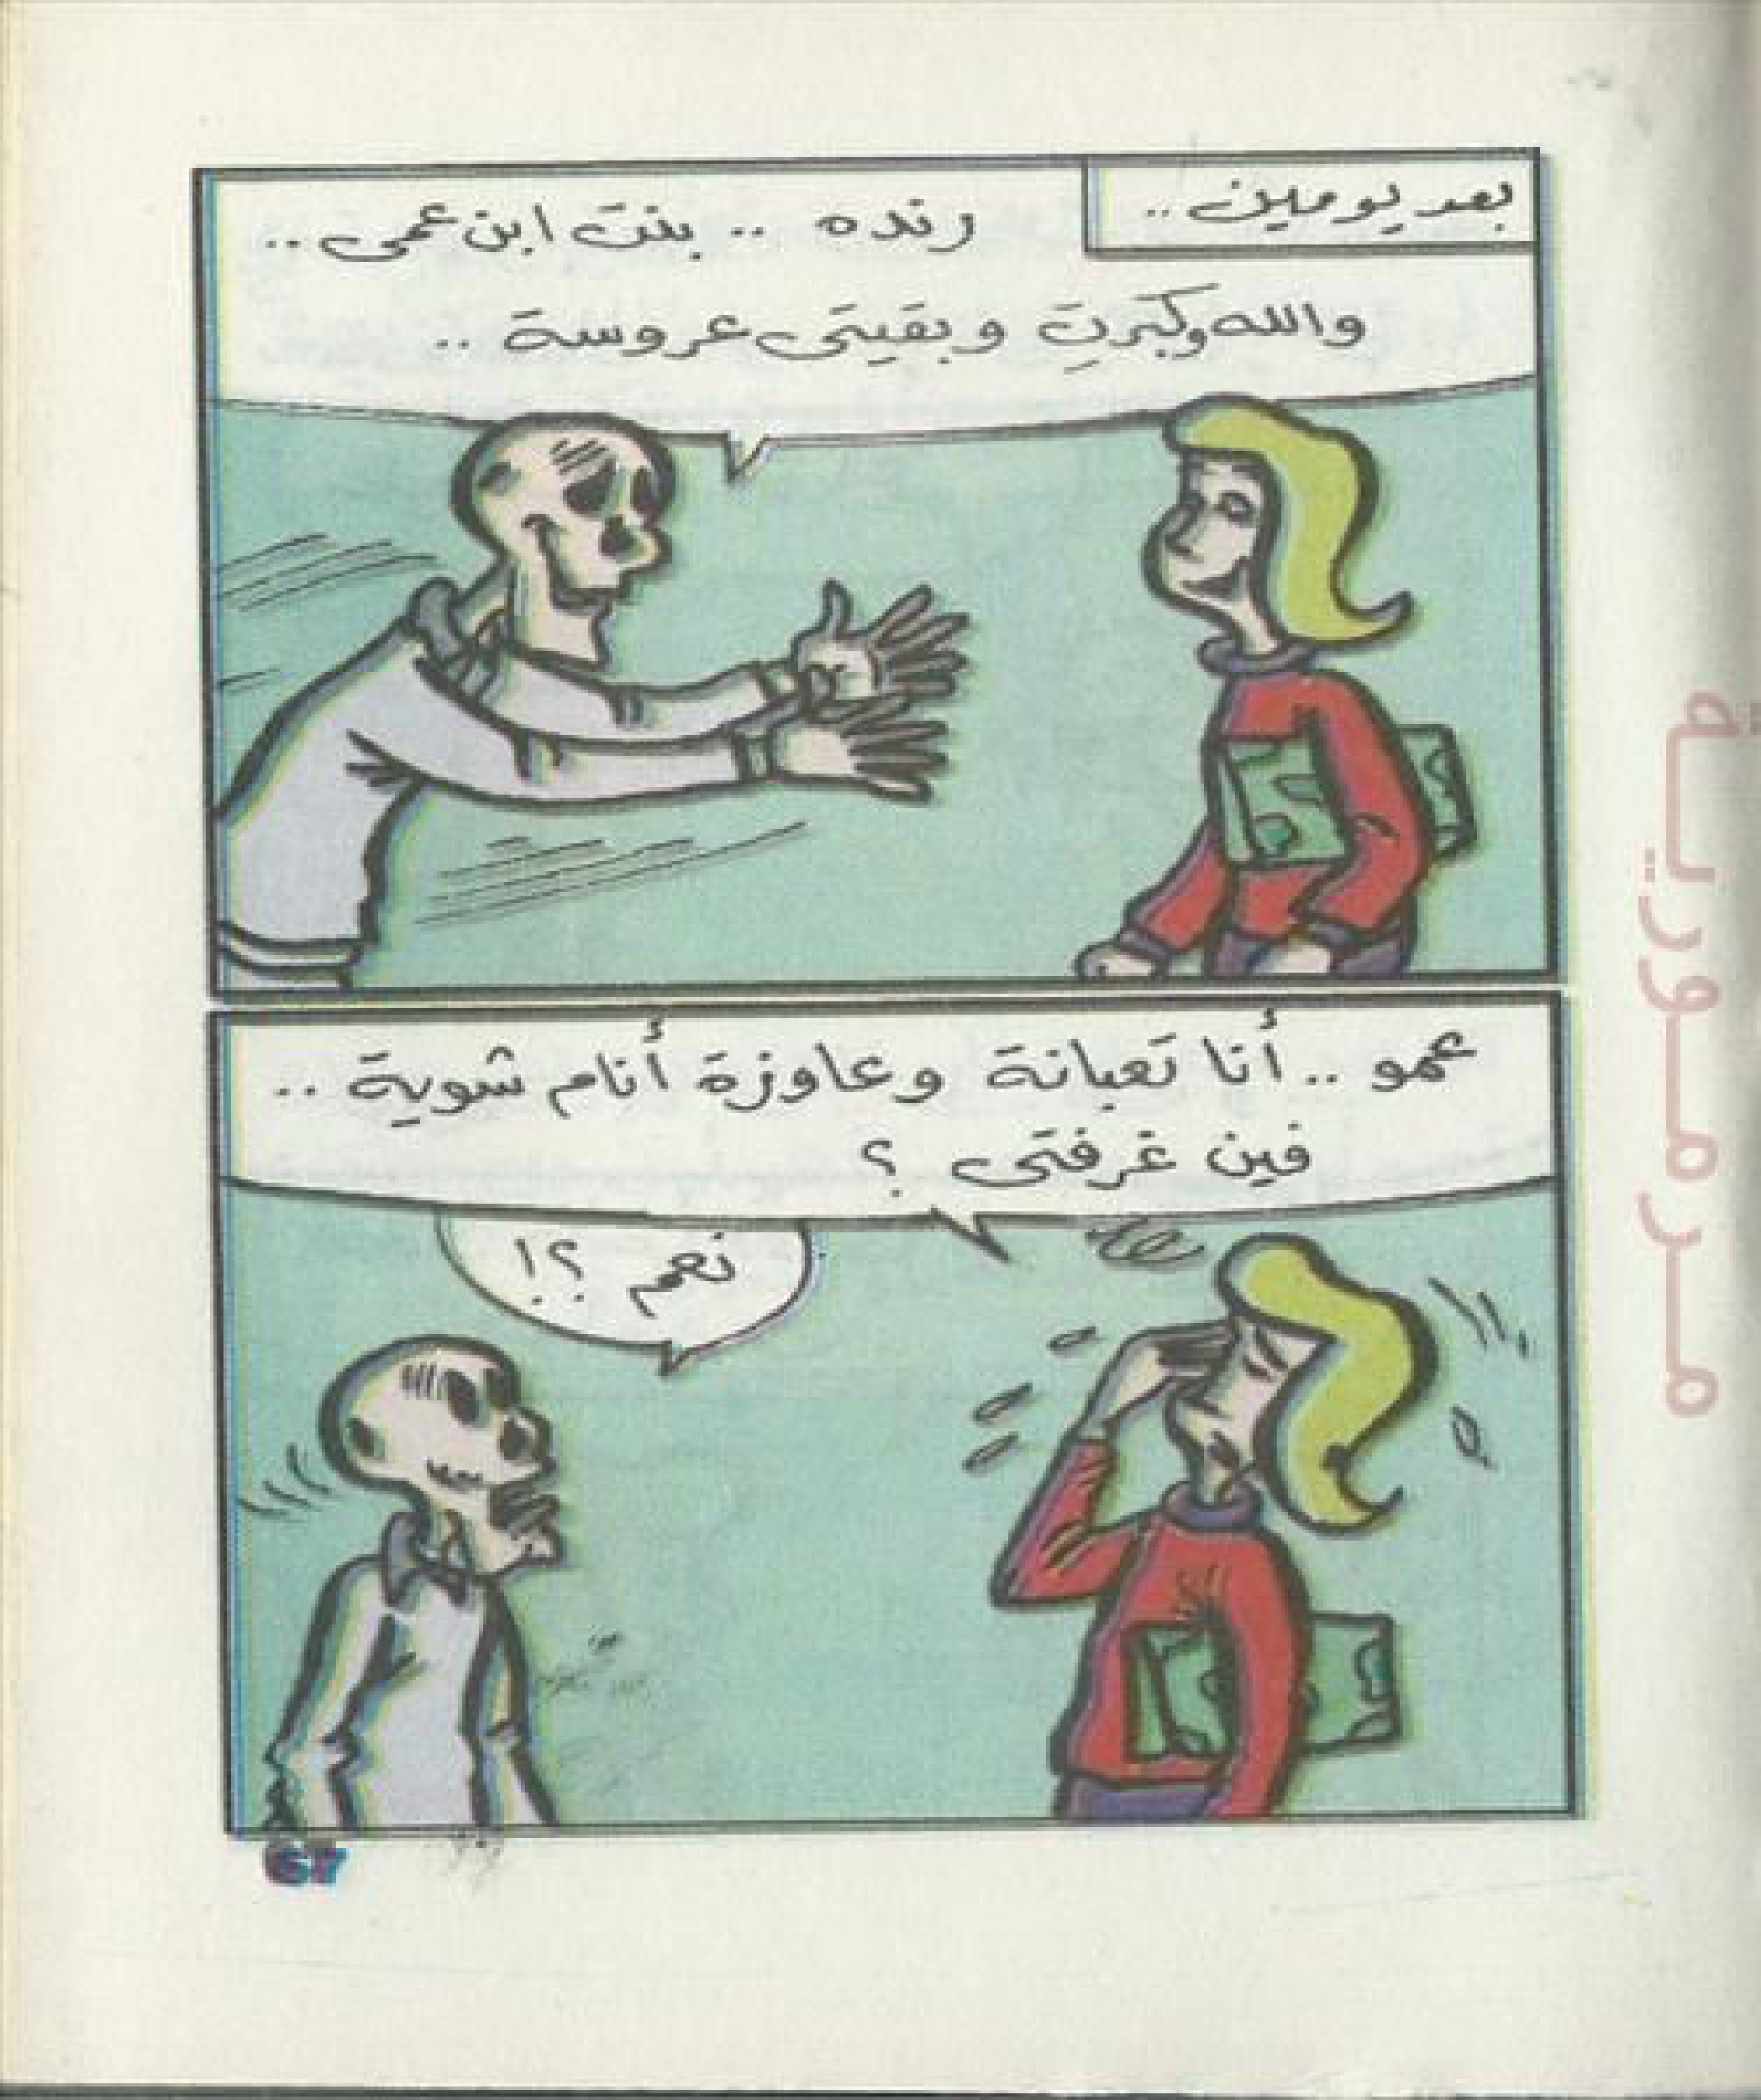 بعد يومين..
رنده .. بنت ابن عمى ..
والله وكبرتِ وبقيتى عروسة ..
عمو .. أنا تعبانة وعاوزة أنام شوية ..
فين غرفتى ؟
نعم ؟!
67
مرمورية